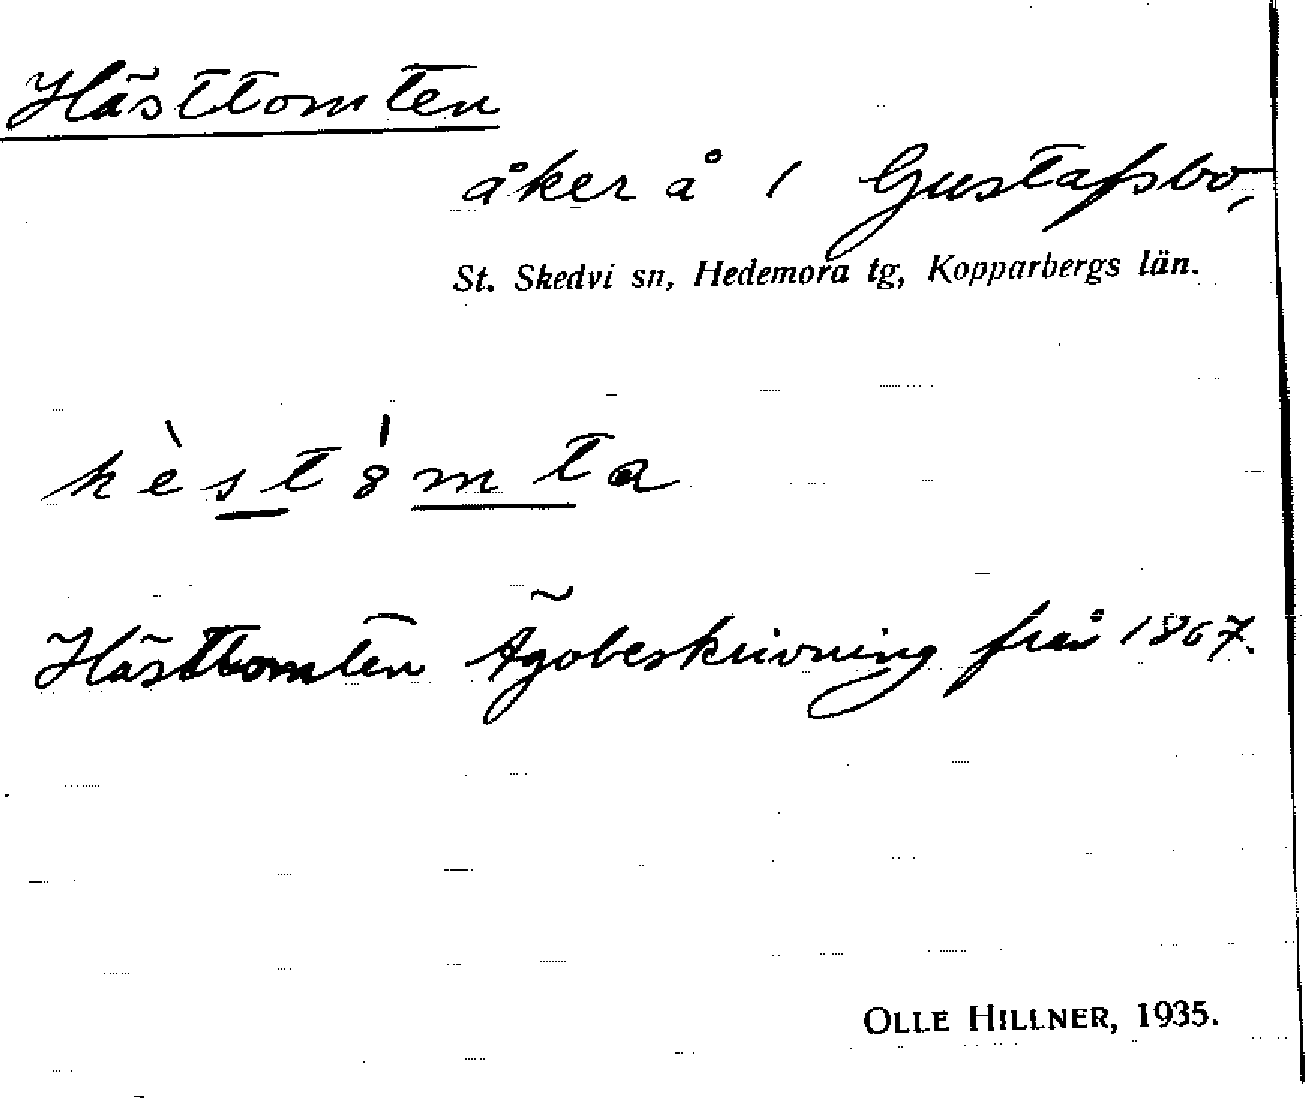 Hästtomten
åker å 1 Gustafsbo,
St. Skedvi sn, Hedemora tg, Kopparbergs län.
hèst8̍mta
Hästtomten Ägobeskrivning från 1867.
OLLE HILLNER, 1935.